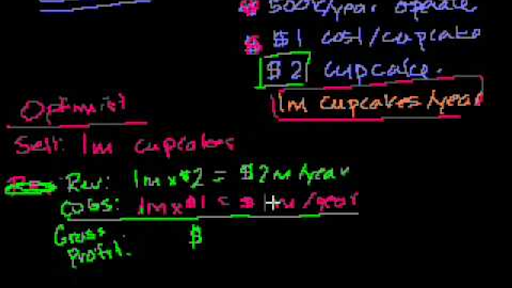 $ 500k/year operate
$ $1 cost/cupcake
$2 cupcake.
1m cupcakes/year
Optimist
Sell: 1m cupcakes
Rev: 1m x $2 = $2m/year
COGS: 1m x $1 = $1m/year
Gross $
Profit: